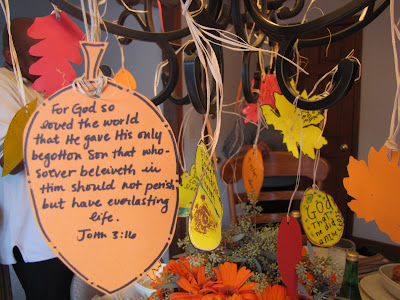 For God so
loved the world
that He gave His only
begotton Son that who-
soever beleiveth in
Him should not perish
but have everlasting
life.
John 3:16
God
that